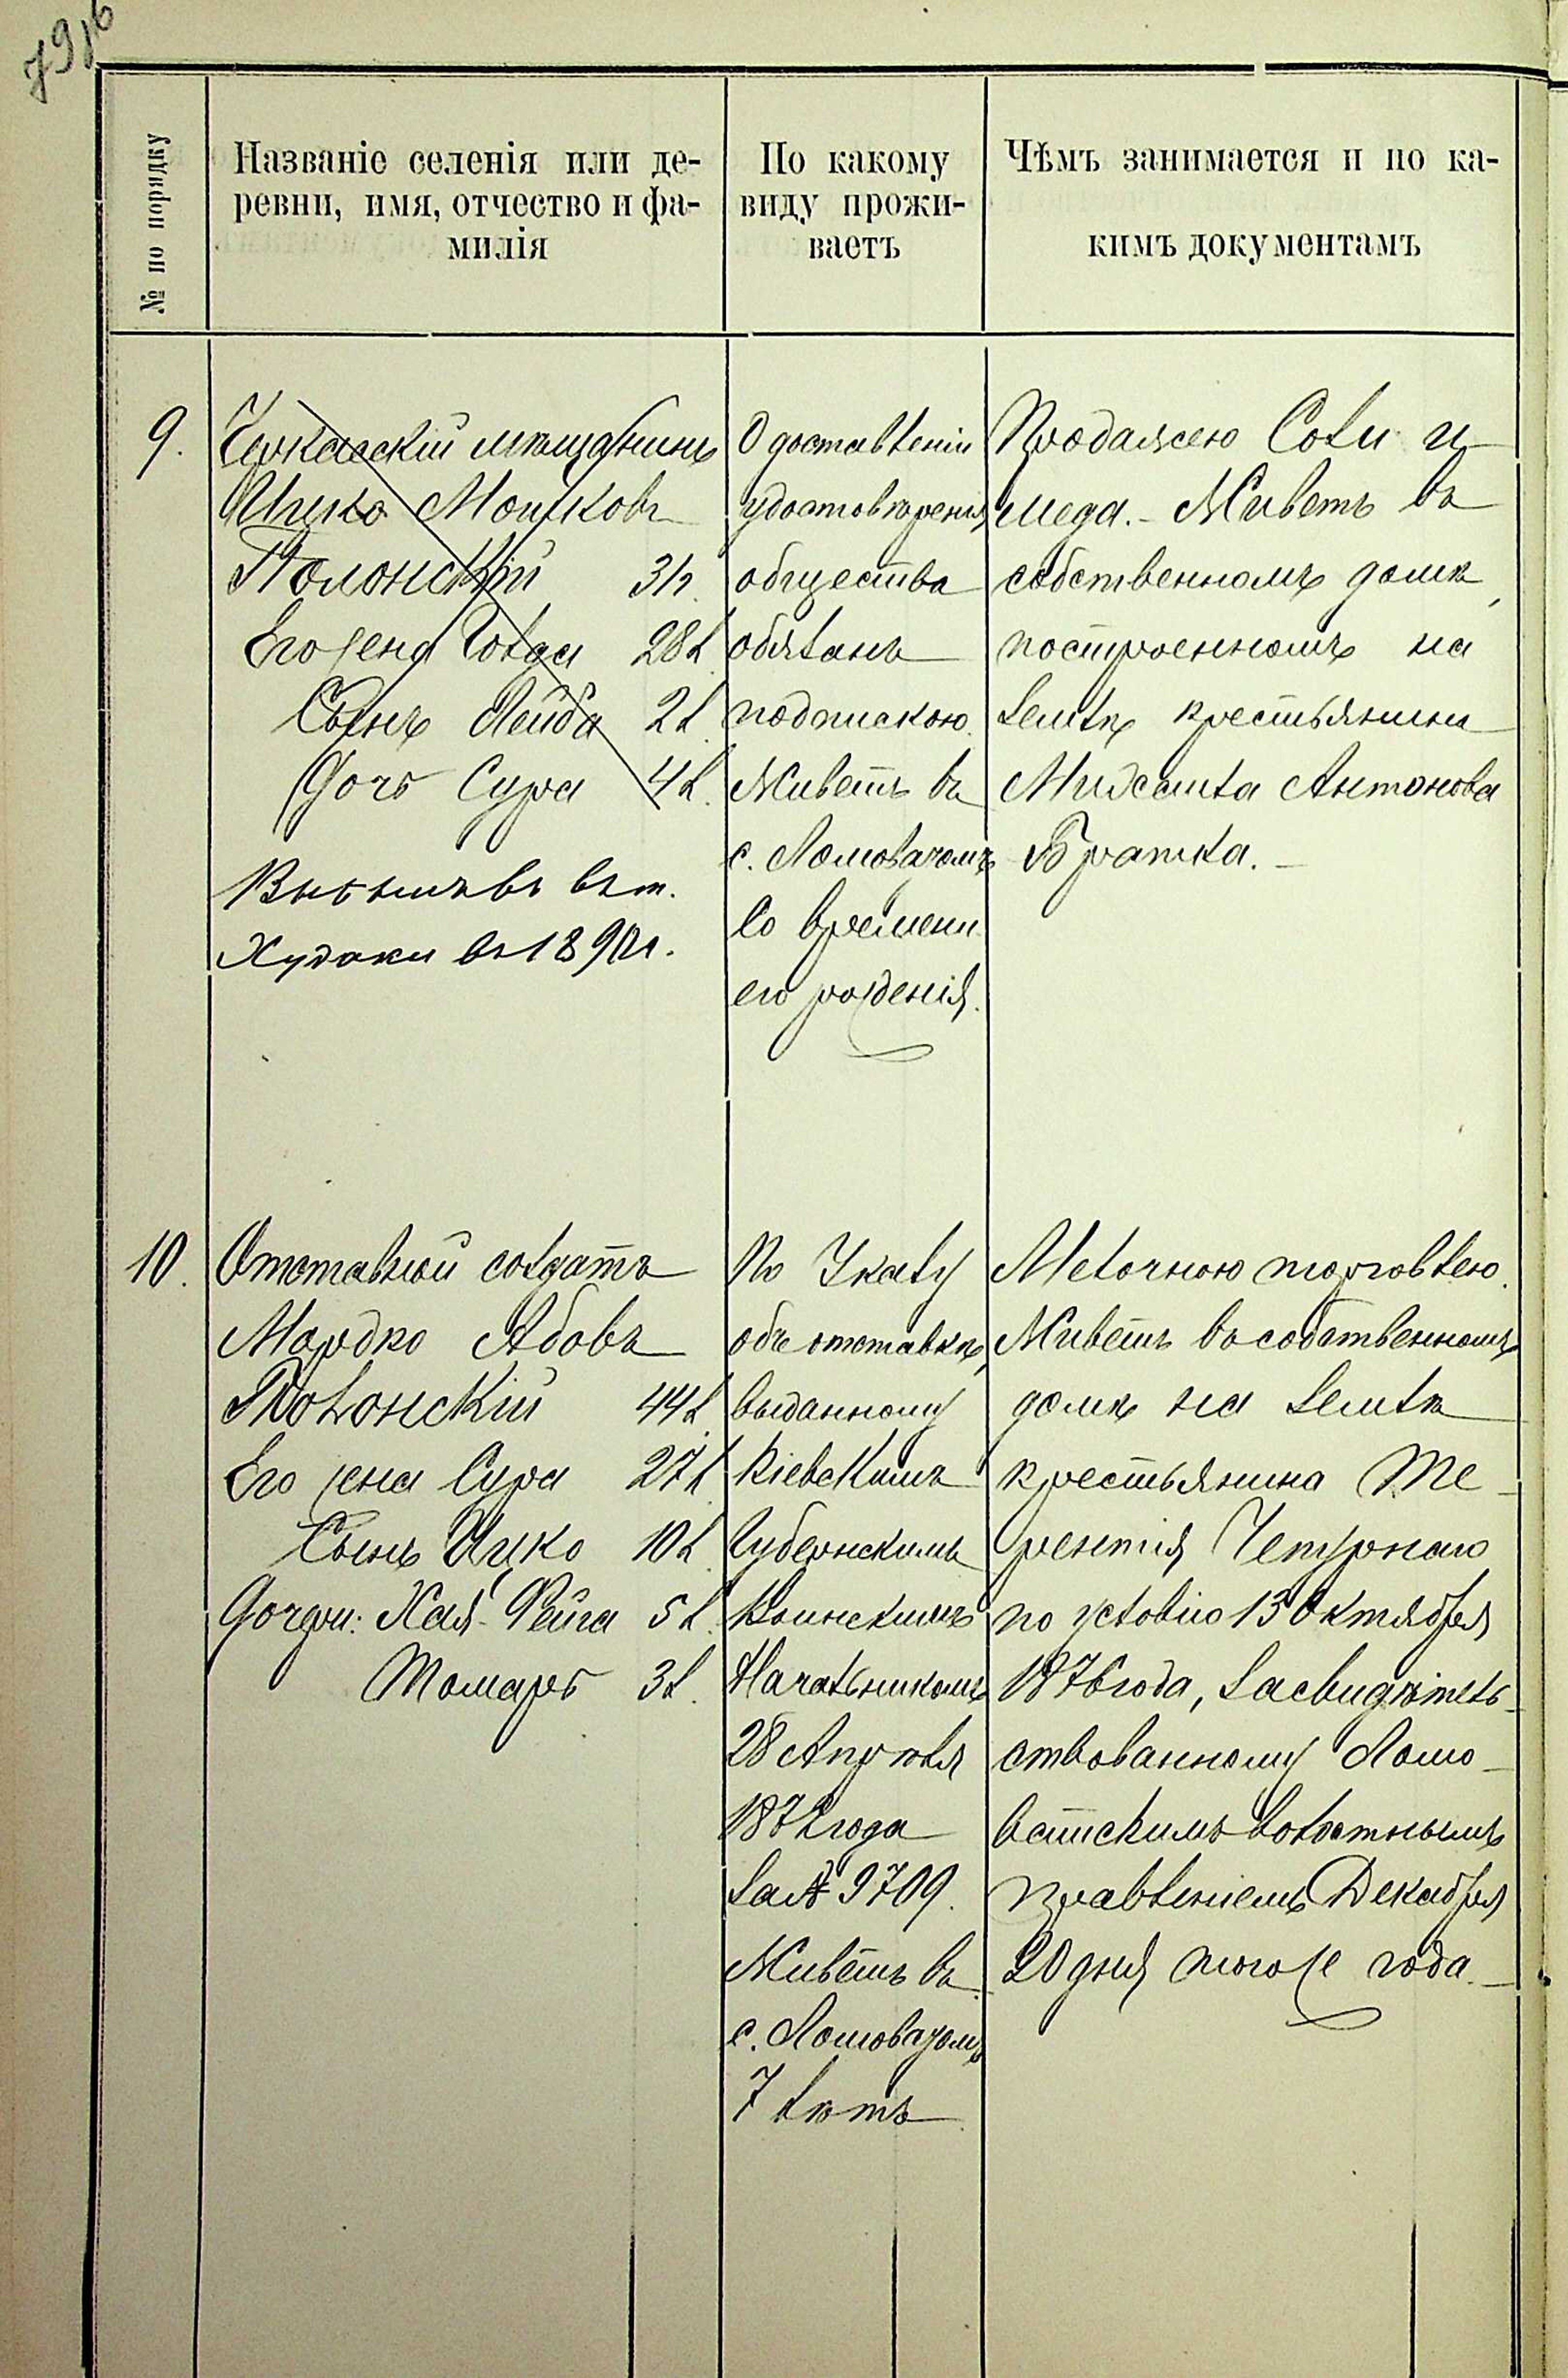 № по порядку
Названіе селенія или де-
ревни, имя, отчество и фа-
милія
По какому
виду прожи-
ваетъ
Чѣмъ занимается и по ка-
кимъ документамъ
9.
Черкасскій мѣщанинъ
Ицко Мошковъ
Полонскій 31л.
Его жена Голда 28л.
Сынъ Лейба 2л.
Дочь Сура 4л.
Выбылъ въ м.
Худяки въ 1890г.
О доставленіи
удостовѣренія
общества
обязанъ
подпискою.
Живетъ въ
с. Ломоватомъ
со времени
его рожденія.
Продажею Соли и
меда. - Живетъ въ
собственномъ домѣ,
построенномъ на
землѣ крестьянина
Антонова
Братка. -
10.
Отставной солдатъ
Мордко Абовъ
Полонскій 44л.
Его жена Сура 27л.
Сынъ Ицко 10л.
Дочери: Хая-Фейга 5л.
Томаръ 3л.
По Указу
объ отставкѣ,
выданному
Кіевскимъ
Губернскимъ
Воинскимъ
Начальникомъ
28 Апрѣля
1872 года
за № 9709.
Живетъ въ
с. Ломоватомъ
7 лѣтъ
Мелочною торговлею.
Живетъ въ собственномъ
домѣ на землѣ
крестьянина Те-
рентія
по условію 13 Октября
1876 года, засвидѣтель-
ствованному Ломо-
ватскимъ волостнымъ
правленіемъ Декабря
20 дня того же года. -